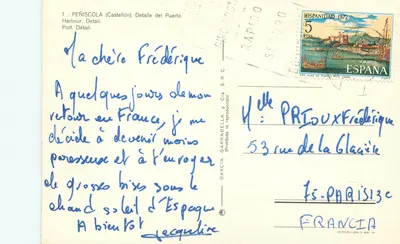 1 - PEÑISCOLA (Castellón). Detalle del Puerto.
Harbour. Detail.
Port. Détail.
Ma chère Frédérique
A quelques jours de mon
retour en France, je me
décide à devenir moins
paresseuse et à t'envoyer
de grosses bises sous le
chaud soleil d'Espagne
A bientôt
Jacqueline
GARCIA GARRABELLA Y Cia
(Prohibida la reproducción)
RAPIDO
HISPANIDAD 1973
5
PTAS
ESPAÑA
Melle PRIOUX Frédérique
53 rue de la Glacière
75-PARIS 13e
FRANCIA